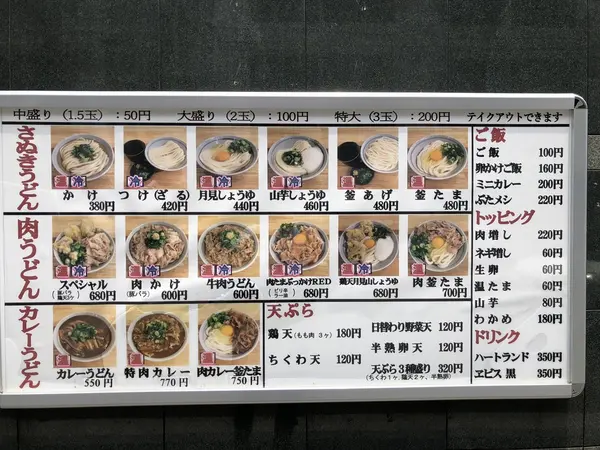 中盛り（1.5玉）：50円　大盛り（2玉）：100円　特大（3玉）：200円　テイクアウトできます
さぬきうどん
温 冷 冷 温 冷 温 冷 温 温
かけ 380円
つけ（ざる） 420円
月見しょうゆ 440円
山芋しょうゆ 460円
釜あげ 480円
釜たま 480円
肉うどん
スペシャル（豚バラ 鶏天3ケ） 680円
肉かけ（豚バラ） 600円
牛肉うどん 600円
肉たまぶっかけRED（ピリ辛ラー油） 680円
鶏天月見山しょうゆ 680円
肉釜たま 700円
カレーうどん
カレーうどん 550円
特肉カレー 770円
肉カレー釜たま 750円
天ぷら
鶏天（もも肉 3ヶ） 180円
ちくわ天 120円
日替わり野菜天 120円
半熟卵天 120円
天ぷら3種盛り 320円
（ちくわ1ヶ,鶏天2ヶ,半熟卵）
ご飯
ご飯 100円
卵かけご飯 160円
ミニカレー 200円
ぶたメシ 220円
トッピング
肉増し 220円
ネギ増し 60円
生卵 60円
温たま 60円
山芋 80円
わかめ 80円
ドリンク
ハートランド 350円
ヱビス黒 350円